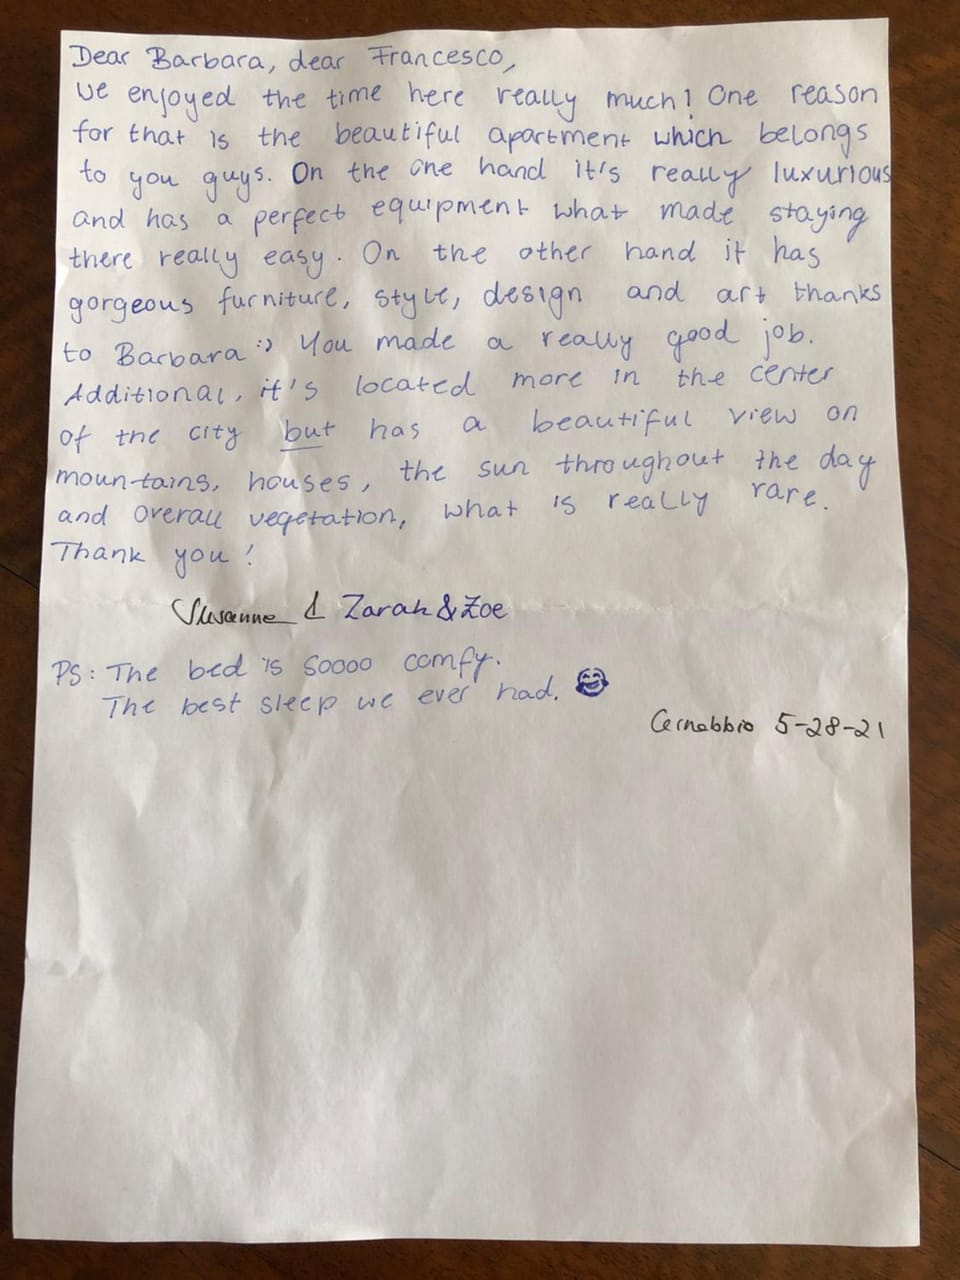 Dear Barbara, dear Francesco,
we enjoyed the time here really much! One reason
for that is the beautiful apartment which belongs
to you guys. On the one hand it's really luxurious
and has a perfect equipment what made staying
there really easy. On the other hand it has
gorgeous furniture, style, design and art thanks
to Barbara :) You made a really good job.
Additional, it's located more in the center
of the city but has a beautiful view on
mountains, houses, the sun throughout the day
and overall vegetation, what is really rare.
Thank you!
Susanne & Zarah & Zoe
PS: The bed is soooo comfy.
The best sleep we ever had. 😂
Cernobbio 5-28-21